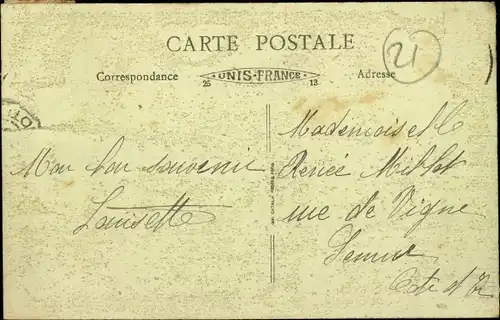 CARTE POSTALE
21
Correspondance
UNIS-FRANCE
25 13
Adresse
Mon bon souvenir
Lousette
Mademoiselle
Renée Millot
rue de Vigne
Semur
Cote d'Or